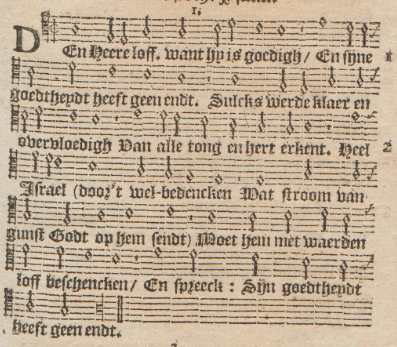 I.
DEn Heere loff, want hy is goedigh / En sijne 1
goedtheydt heeft geen endt. Sulcks werde klaer en
overvloedigh Van alle tong en hert erkent. Heel 2
Israel (door't wel-bedencken Wat stroom van
gunst Godt op hem sendt) Moet hem met waerden
loff beschencken / En spreeck : Sijn goedtheydt
heeft geen endt.